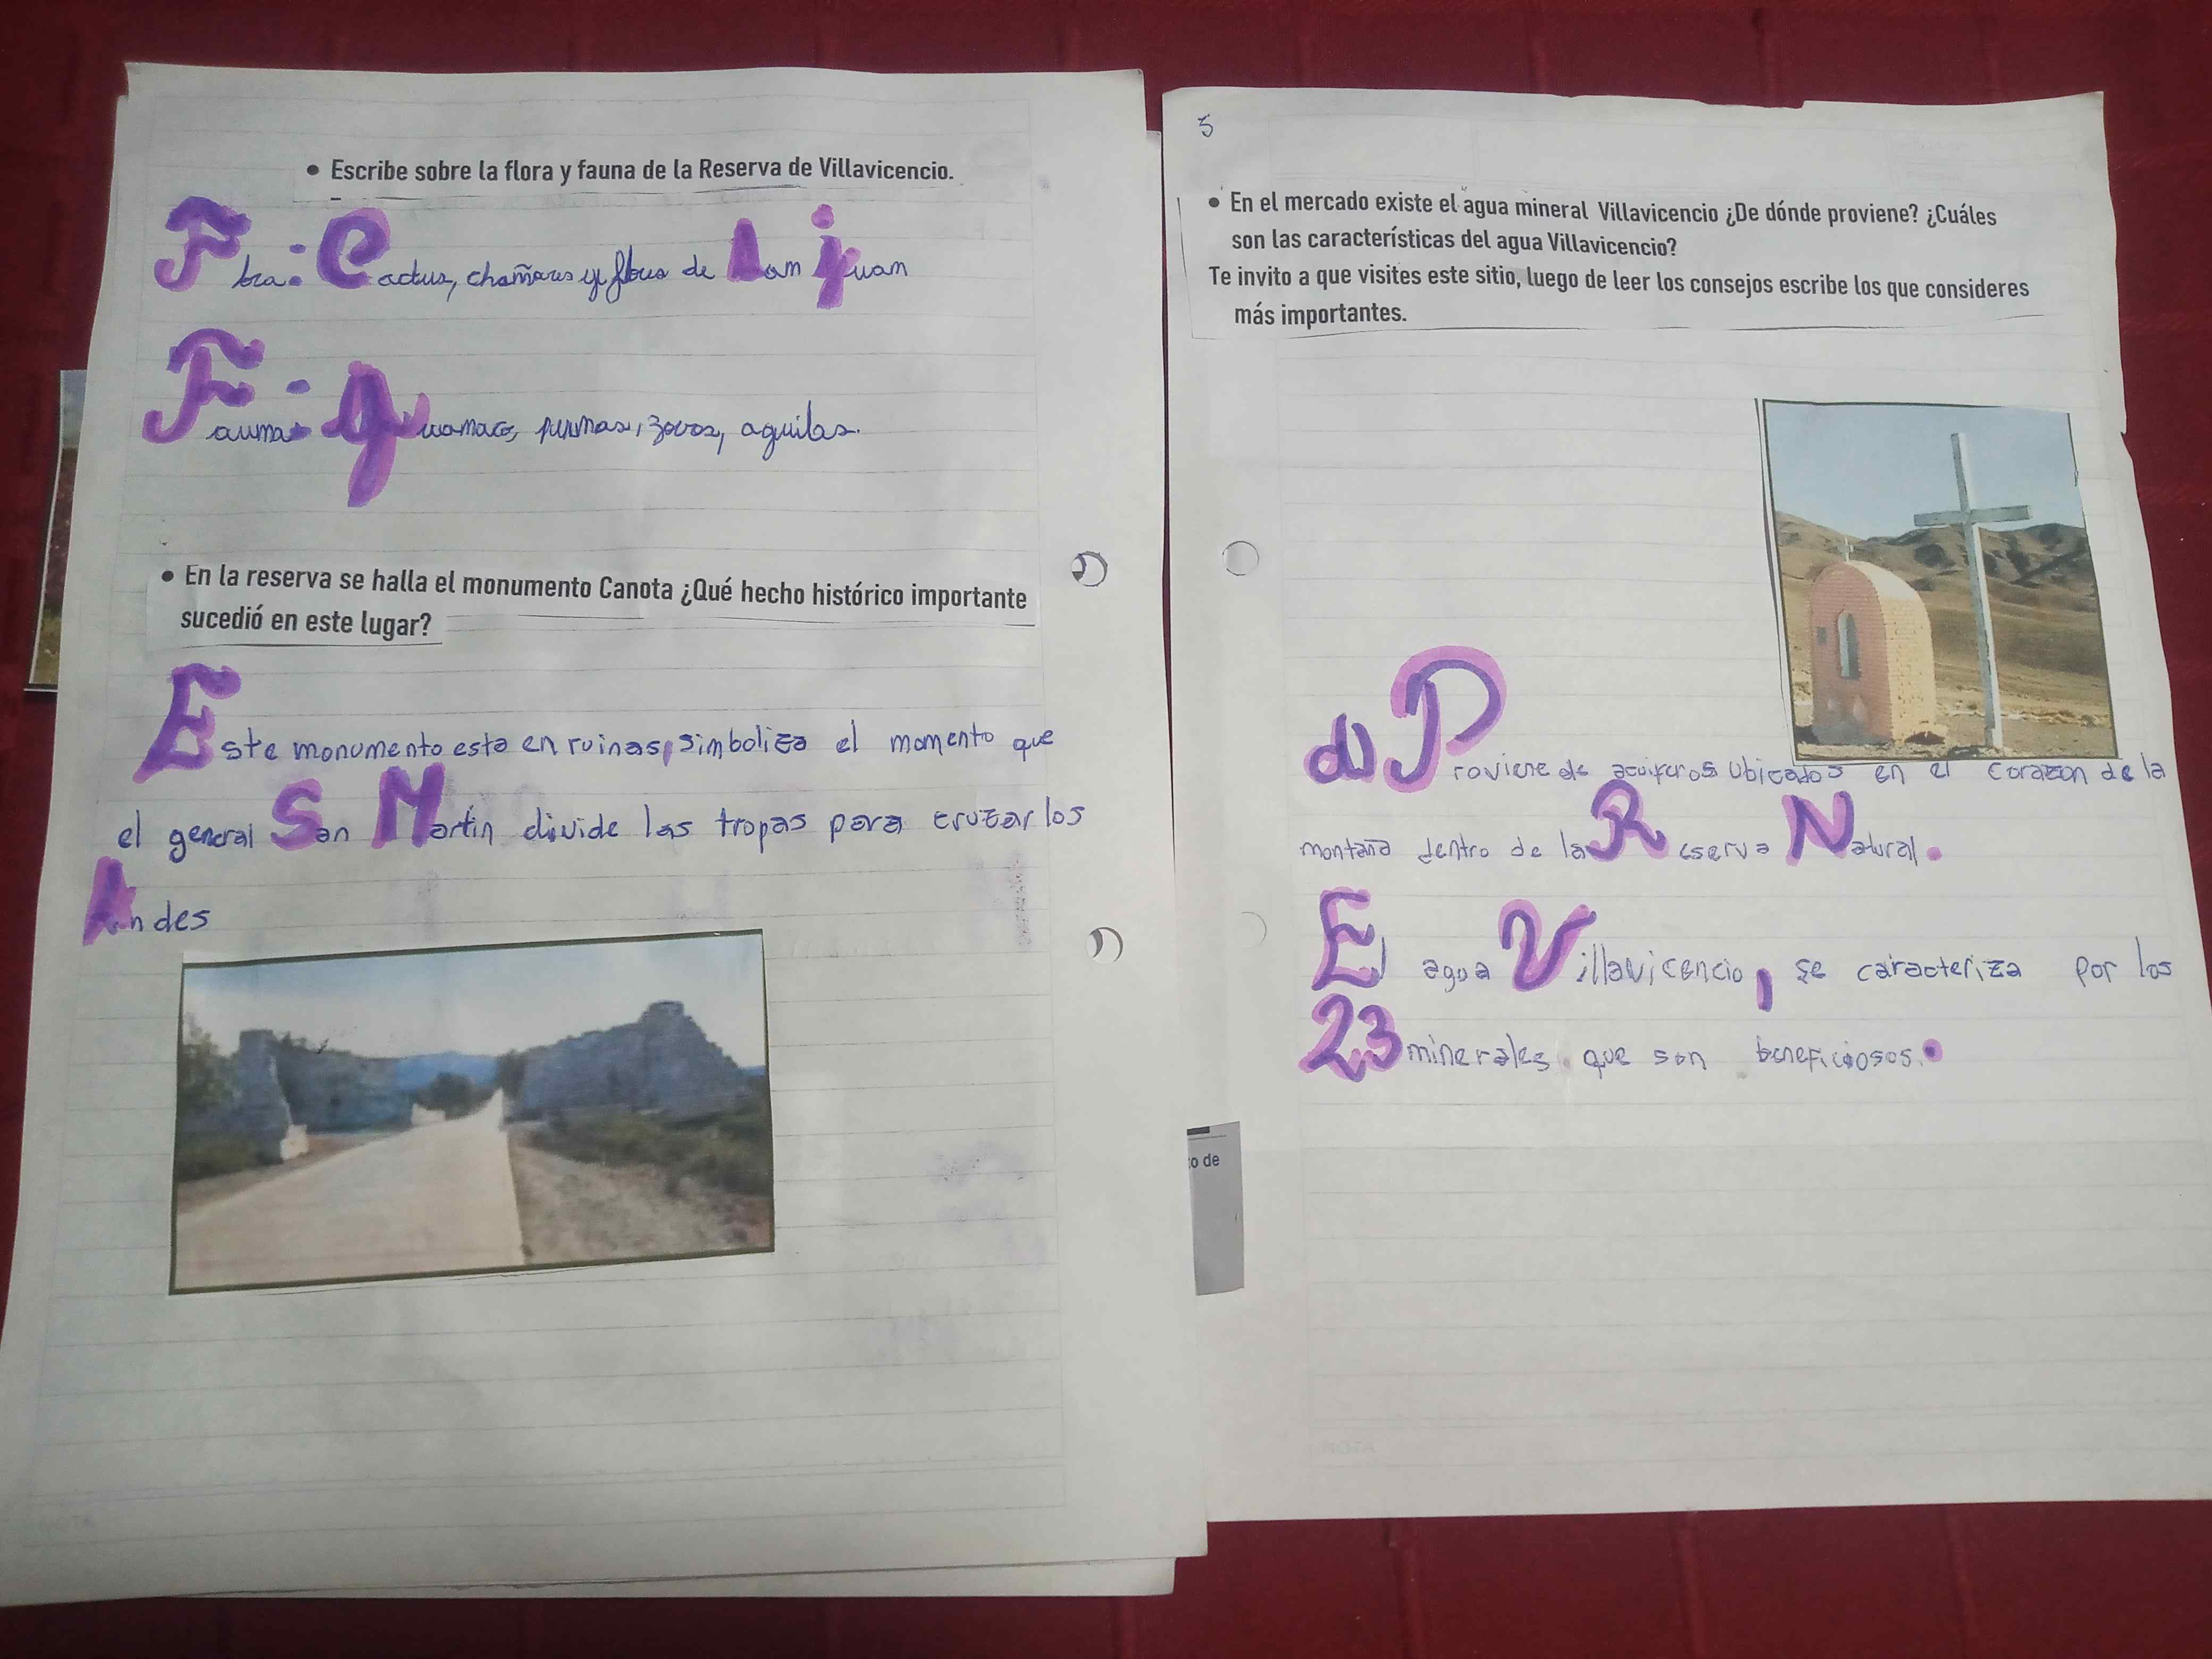 • Escribe sobre la flora y fauna de la Reserva de Villavicencio.
Flora: Cactus, chañares y flores de San juan
Fauna: guanaco, pumas, zorros, aguilas.
• En la reserva se halla el monumento Canota ¿Qué hecho histórico importante
sucedió en este lugar?
Este monumento esta en ruinas, simboliza el momento que
el general San Martín divide las tropas para cruzar los
Andes
5
• En el mercado existe el agua mineral Villavicencio ¿De dónde proviene? ¿Cuáles
son las características del agua Villavicencio?
Te invito a que visites este sitio, luego de leer los consejos escribe los que consideres
más importantes.
d) Proviene de acuiferos ubicados en el corazon de la
montaña dentro de la Reserva Natural.
El agua Villavicencio, se caracteriza por los
23 minerales que son beneficiosos.
to de